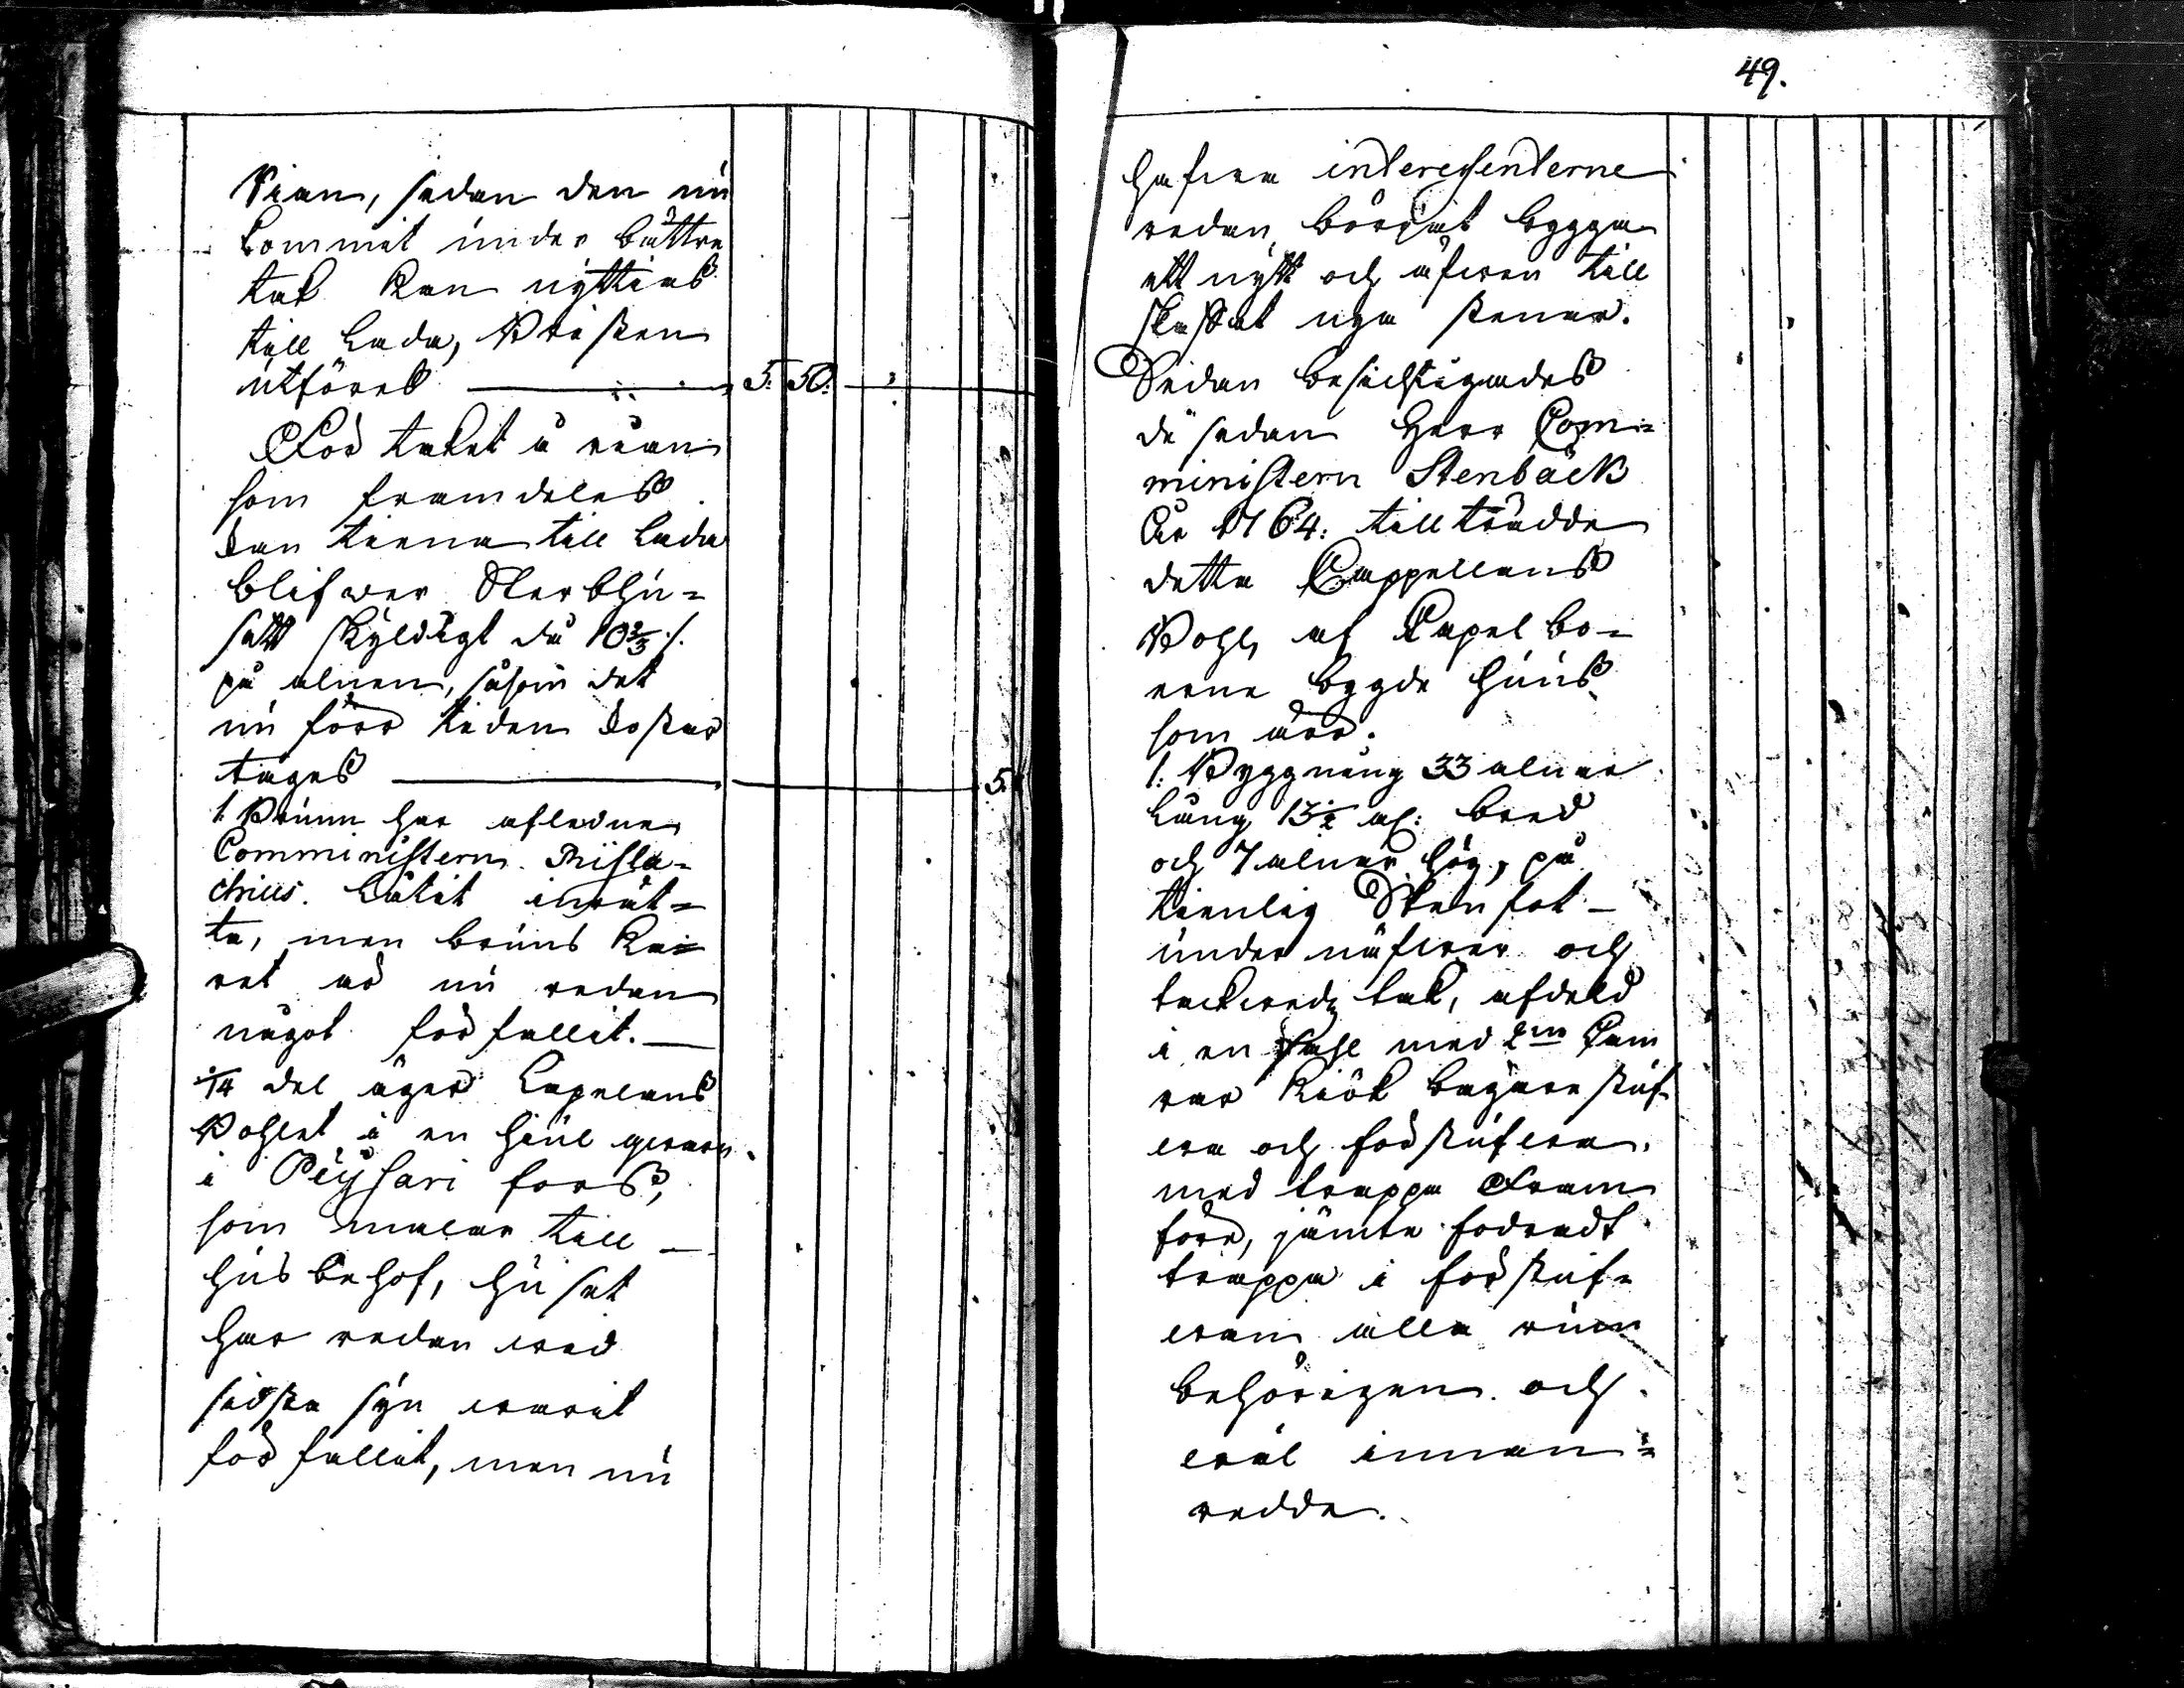 Rian, sedan den nu
kommit under bättre
tak kan nyttias
till Lada, Bristen
utföres 5. 50.
För taket å rian
som framdeles
kan tiena till Lada
blifwer Sterbhu-
sett skyldigt då 10 2/3 /.
på alnen, såsom det
nu förr tiden kostar
tages 5.
1. Brunn har afledne
Comministern Misla-
chius låtit inrät-
ta, men bruns Ka-
ret är nu redan
något förfallit.
1/14 del äger Capelans
Bohlet i en hiul qwarn
i Pëysari fors,
som malar till
husbehof, huset
har redan wid
sidsta syn warit
förfallit, men nu
49.
hafwa interessenterne
redan börjat bygga
ett nytt och äfwen till
skaffat nya stenar.
Sedan besichtigades
de sedan Herr Com-
ministern Stenbäck
År 1764: tillträdde
detta Cappellans
Bohl, af Capel bo-
erne bygde huus
som äro.
1. Byggning 33 alnar
Lång 13 1/2 al: bred
och 7 alnar hög, på
tienlig Stenfot
under näfwer och
takwedz tak, afdeld
i en Sahl med 2ne Cam
rar Kiök bagare stuf-
wa och förstufwa,
med trappa Fram
före, jämte fodradt
trappa i förstuf-
wan alla rum
behörigen och
wäl innan-
redde.